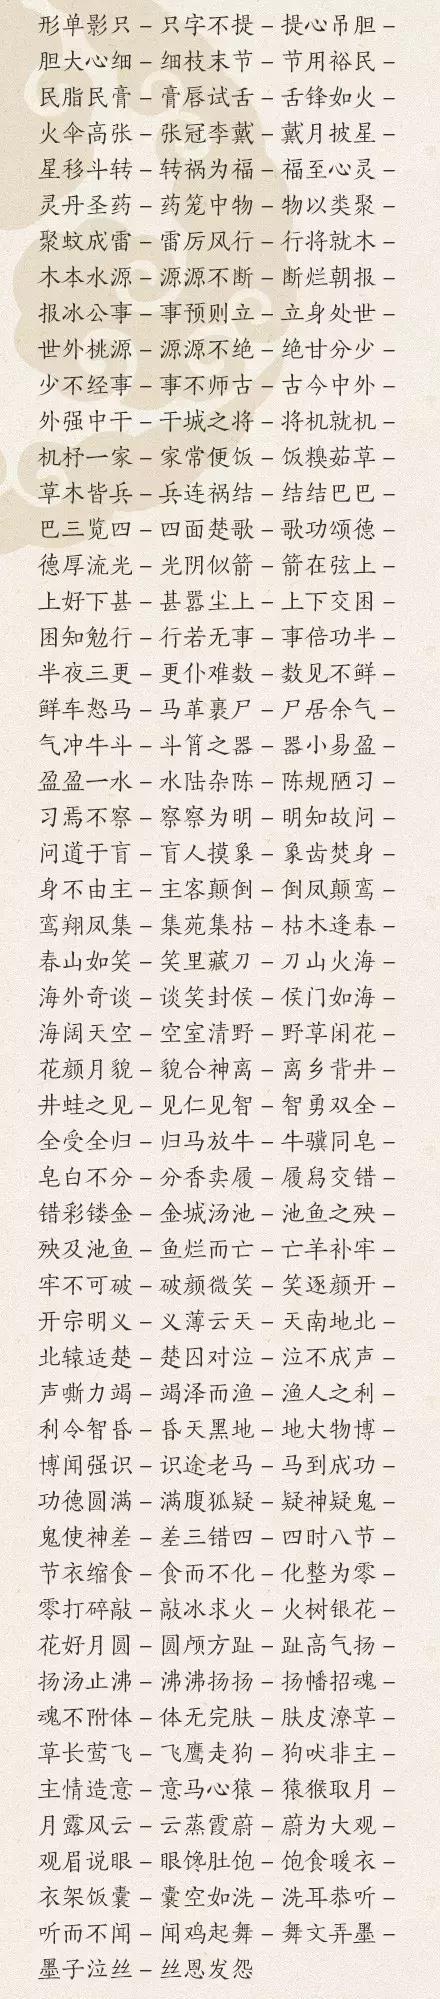 形单影只 – 只字不提 – 提心吊胆 –
胆大心细 – 细枝末节 – 节用裕民 –
民脂民膏 – 膏唇试舌 – 舌锋如火 –
火伞高张 – 张冠李戴 – 戴月披星 –
星移斗转 – 转祸为福 – 福至心灵 –
灵丹圣药 – 药笼中物 – 物以类聚 –
聚蚊成雷 – 雷厉风行 – 行将就木 –
木本水源 – 源源不断 – 断烂朝报 –
报冰公事 – 事预则立 – 立身处世 –
世外桃源 – 源源不绝 – 绝甘分少 –
少不经事 – 事不师古 – 古今中外 –
外强中干 – 干城之将 – 将机就机 –
机杼一家 – 家常便饭 – 饭糗茹草 –
草木皆兵 – 兵连祸结 – 结结巴巴 –
巴三览四 – 四面楚歌 – 歌功颂德 –
德厚流光 – 光阴似箭 – 箭在弦上 –
上好下甚 – 甚嚣尘上 – 上下交困 –
困知勉行 – 行若无事 – 事倍功半 –
半夜三更 – 更仆难数 – 数见不鲜 –
鲜车怒马 – 马革裹尸 – 尸居余气 –
气冲牛斗 – 斗筲之器 – 器小易盈 –
盈盈一水 – 水陆杂陈 – 陈规陋习 –
习焉不察 – 察察为明 – 明知故问 –
问道于盲 – 盲人摸象 – 象齿焚身 –
身不由主 – 主客颠倒 – 倒凤颠鸾 –
鸾翔凤集 – 集苑集枯 – 枯木逢春 –
春山如笑 – 笑里藏刀 – 刀山火海 –
海外奇谈 – 谈笑封侯 – 侯门如海 –
海阔天空 – 空室清野 – 野草闲花 –
花颜月貌 – 貌合神离 – 离乡背井 –
井蛙之见 – 见仁见智 – 智勇双全 –
全受全归 – 归马放牛 – 牛骥同皂 –
皂白不分 – 分香卖履 – 履舄交错 –
错彩镂金 – 金城汤池 – 池鱼之殃 –
殃及池鱼 – 鱼烂而亡 – 亡羊补牢 –
牢不可破 – 破颜微笑 – 笑逐颜开 –
开宗明义 – 义薄云天 – 天南地北 –
北辕适楚 – 楚囚对泣 – 泣不成声 –
声嘶力竭 – 竭泽而渔 – 渔人之利 –
利令智昏 – 昏天黑地 – 地大物博 –
博闻强识 – 识途老马 – 马到成功 –
功德圆满 – 满腹狐疑 – 疑神疑鬼 –
鬼使神差 – 差三错四 – 四时八节 –
节衣缩食 – 食而不化 – 化整为零 –
零打碎敲 – 敲冰求火 – 火树银花 –
花好月圆 – 圆颅方趾 – 趾高气扬 –
扬汤止沸 – 沸沸扬扬 – 扬幡招魂 –
魂不附体 – 体无完肤 – 肤皮潦草 –
草长莺飞 – 飞鹰走狗 – 狗吠非主 –
主情造意 – 意马心猿 – 猿猴取月 –
月露风云 – 云蒸霞蔚 – 蔚为大观 –
观眉说眼 – 眼馋肚饱 – 饱食暖衣 –
衣架饭囊 – 囊空如洗 – 洗耳恭听 –
听而不闻 – 闻鸡起舞 – 舞文弄墨 –
墨子泣丝 – 丝恩发怨